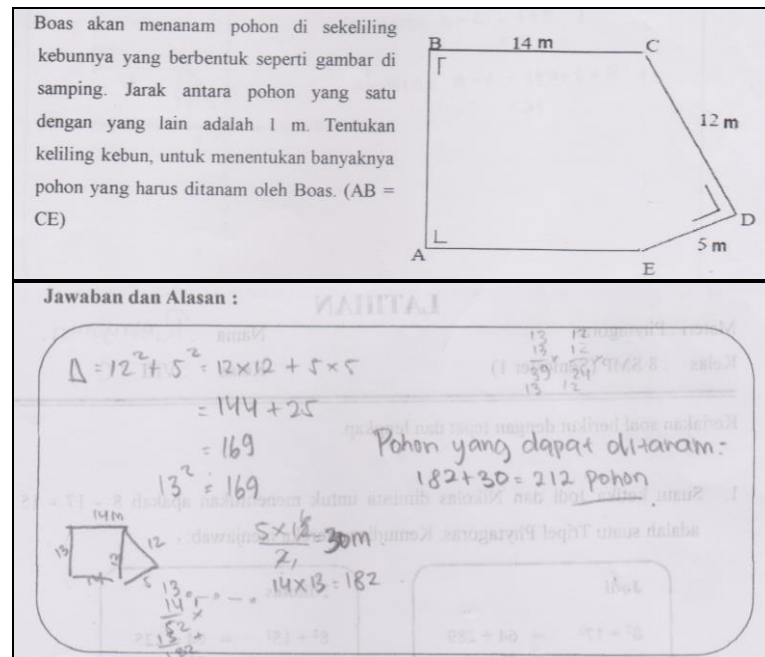 Boas akan menanam pohon di sekeliling
kebunnya yang berbentuk seperti gambar di
samping. Jarak antara pohon yang satu
dengan yang lain adalah 1 m. Tentukan
keliling kebun, untuk menentukan banyaknya
pohon yang harus ditanam oleh Boas. (AB =
CE)
B 14 m C
12 m
D
5 m
A
E
Jawaban dan Alasan :
Δ = 12² + 5² = 12 x 12 + 5 x 5
= 144 + 25
= 169
13² = 169
13 12
13 12
39 24
13 12
Pohon yang dapat ditanam:
182 + 30 = 212 pohon
14 m
13 13 12
14 5
30 m
14 x 13 = 182
13
14 x
52
13 +
182